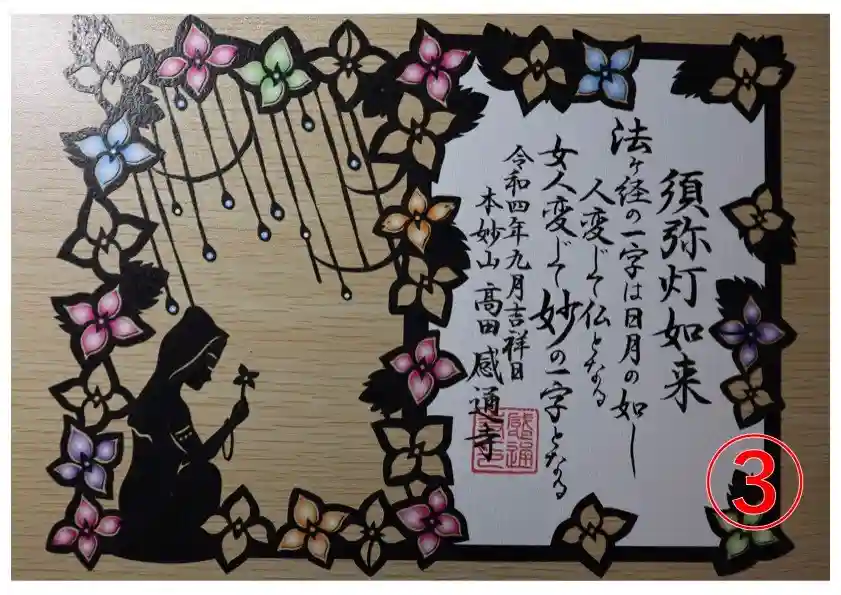 須弥灯如来
法ヶ経の一字は日月の如し
人変じて仏となる
女人変じて妙の一字となる
令和四年九月吉祥日
本妙山 高田 感通寺
感通
③